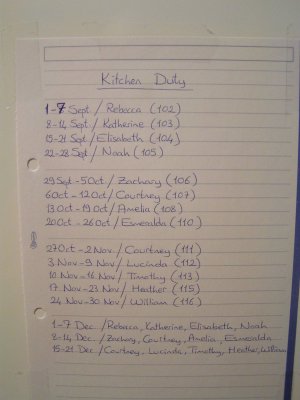 Kitchen Duty
1-7 Sept / Rebecca (102)
8-14 Sept / Katherine (103)
15-21 Sept / Elisabeth (104)
22-28 Sept / Noah (105)
29 Sept - 5 Oct / Zachary (106)
6 Oct - 12 Oct / Courtney (107)
13 Oct - 19 Oct / Amelia (108)
20 Oct - 26 Oct / Esmeralda (110)
27 Oct - 2 Nov / Courtney (111)
3 Nov - 9 Nov / Lucinda (112)
10 Nov - 16 Nov / Timothy (113)
17 Nov - 23 Nov / Heather (115)
24 Nov - 30 Nov / William (116)
1-7 Dec / Rebecca, Katherine, Elisabeth, Noah
8-14 Dec / Zachary, Courtney, Amelia, Esmeralda
15-21 Dec / Courtney, Lucinda, Timothy, Heather, William